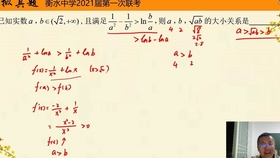 拟真题 衡水中学2021届第一次联考
已知实数a，b∈(√2,+∞)，且满足 1/a² - 1/b² > ln b/a，则a，b，√ab的大小关系是 a>√ab>b
> lnb - lna
1/a² + lna > 1/b² + lnb
f(x) = 1/x² + lnx (x>√2)
a > b
4 2
f'(x) = -2/x³ + 1/x
= x²-2/x³ > 0
f(x)↑
a > b